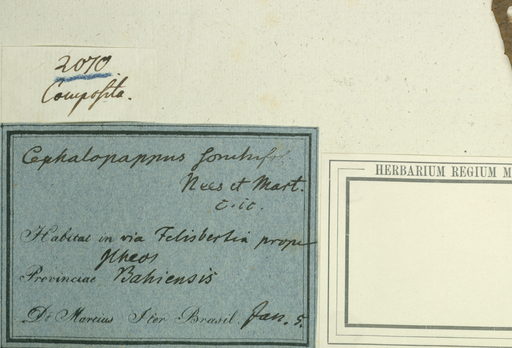 2070
Composita.
Cephalopappus sonchifol.
Nees et Mart.
c. ic.
Habitat in via Felisbertia prope
Ilheos
Provinciae Bahiensis
Dr Martius Iter Brasil. Jan. 5.
HERBARIUM REGIUM M